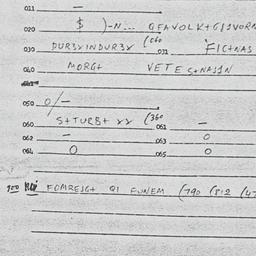 011. —
020. $ )-N... QFAVOLK+GISVORN
030. DUR3XINDUR3X (060 031. FIC+NAS
040. MORG+ VETES+NASIN
050. 0/-
060. S+TURB+ XX (360 061. —
062. — 063. 0
064. 0 065. 0
700 FOMRESG+ QI FUNEM (790 (812